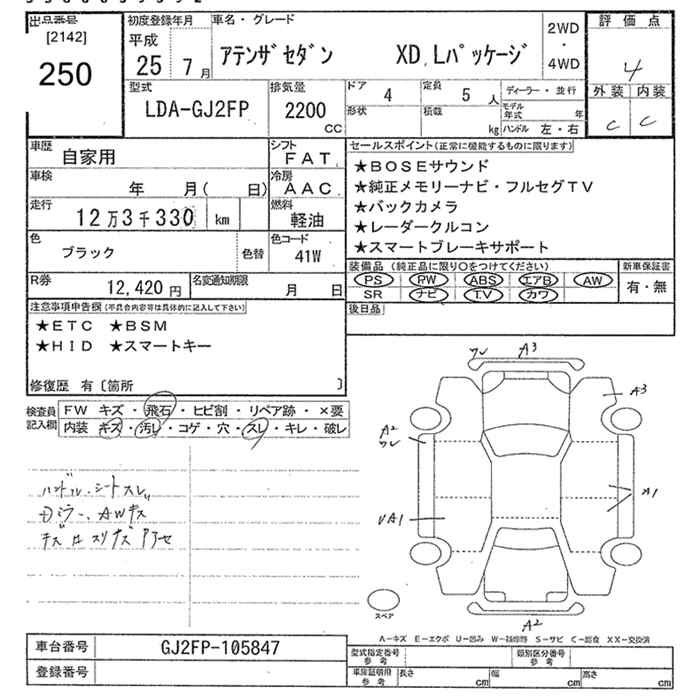 出品番号
[2142]
250
初度登録年月
平成
25 7月
車名・グレード
アテンザセダン XD Lパッケージ
2WD
・
4WD
評価点
4
外装 内装
C C
型式
LDA-GJ2FP
排気量
2200
CC
ドア 4
定員 5人
ディーラー・並行
形状
積載 kg
モデル年式 年
ハンドル 左・右
車歴 自家用
シフト FAT
車検 年 月( 日)
冷房 AAC
走行 12万3千330 km
燃料 軽油
色 ブラック
色替
色コード 41W
R券 12,420円
名変通知期限 月 日
セールスポイント(正常に機能するものに限ります)
★BOSEサウンド
★純正メモリーナビ・フルセグTV
★バックカメラ
★レーダークルコン
★スマートブレーキサポート
装備品(純正品に限り○をつけてください)
新車保証書
PS PW ABS エアB AW
有・無
SR ナビ T.V カワ
後日品
注意事項申告欄(不具合内容等は具体的に記入して下さい)
★ETC ★BSM
★HID ★スマートキー
修復歴 有〔箇所 〕
検査員記入欄
FW キズ・飛石・ヒビ割・リペア跡・×要
内装 キズ・汚レ・コゲ・穴・スレ・キレ・破レ
ハンドル・シートスレ
AWキズ
ワレ A3
A3
A2
ワレ
A1
A1
A2
スペア
A-キズ E-エクボ U-凹み W-補修跡 S-サビ C-腐食 XX-交換済
車台番号 GJ2FP-105847
登録番号
型式指定番号 参考
類別区分番号 参考
車庫証明用 参考
長さ cm
幅 cm
高さ cm